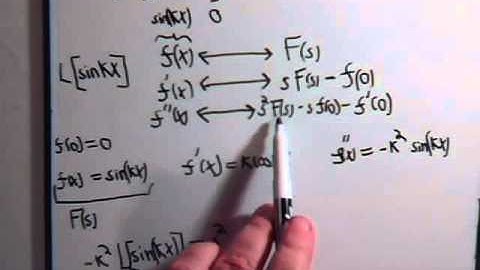 sin(kx) 0
f(x) ⟷ F(s)
L[sin kx]
f'(x) ⟷ sF(s) - f(0)
f''(x) ⟷ s²F(s) - sf(0) - f'(0)
f(0) = 0
f(x) = sin(kx) f'(x) = k co f''(x) = -k² sin(kx)
F(s)
-k² L[sin(kx)] =